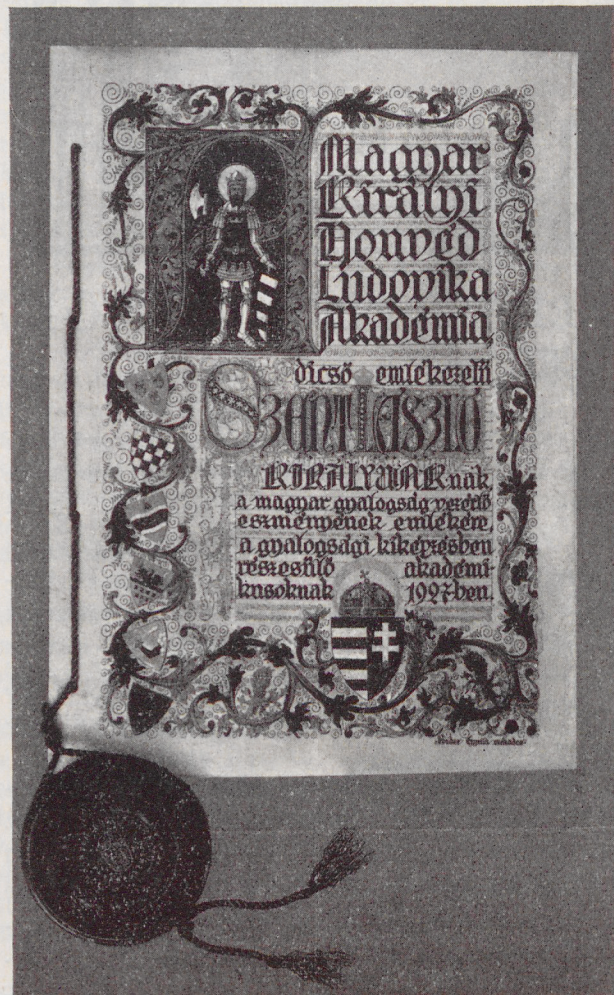 A Magyar
Királyi
Honvéd
Ludovika
Akadémia,
dicső emlékezetű
SZENT LÁSZLÓ
KIRÁLYUNKnak
a magyar gyalogság vezérlő
eszményének emlékére,
a gyalogsági kiképzésben
részesülő akadémi-
kusoknak 1927-ben.